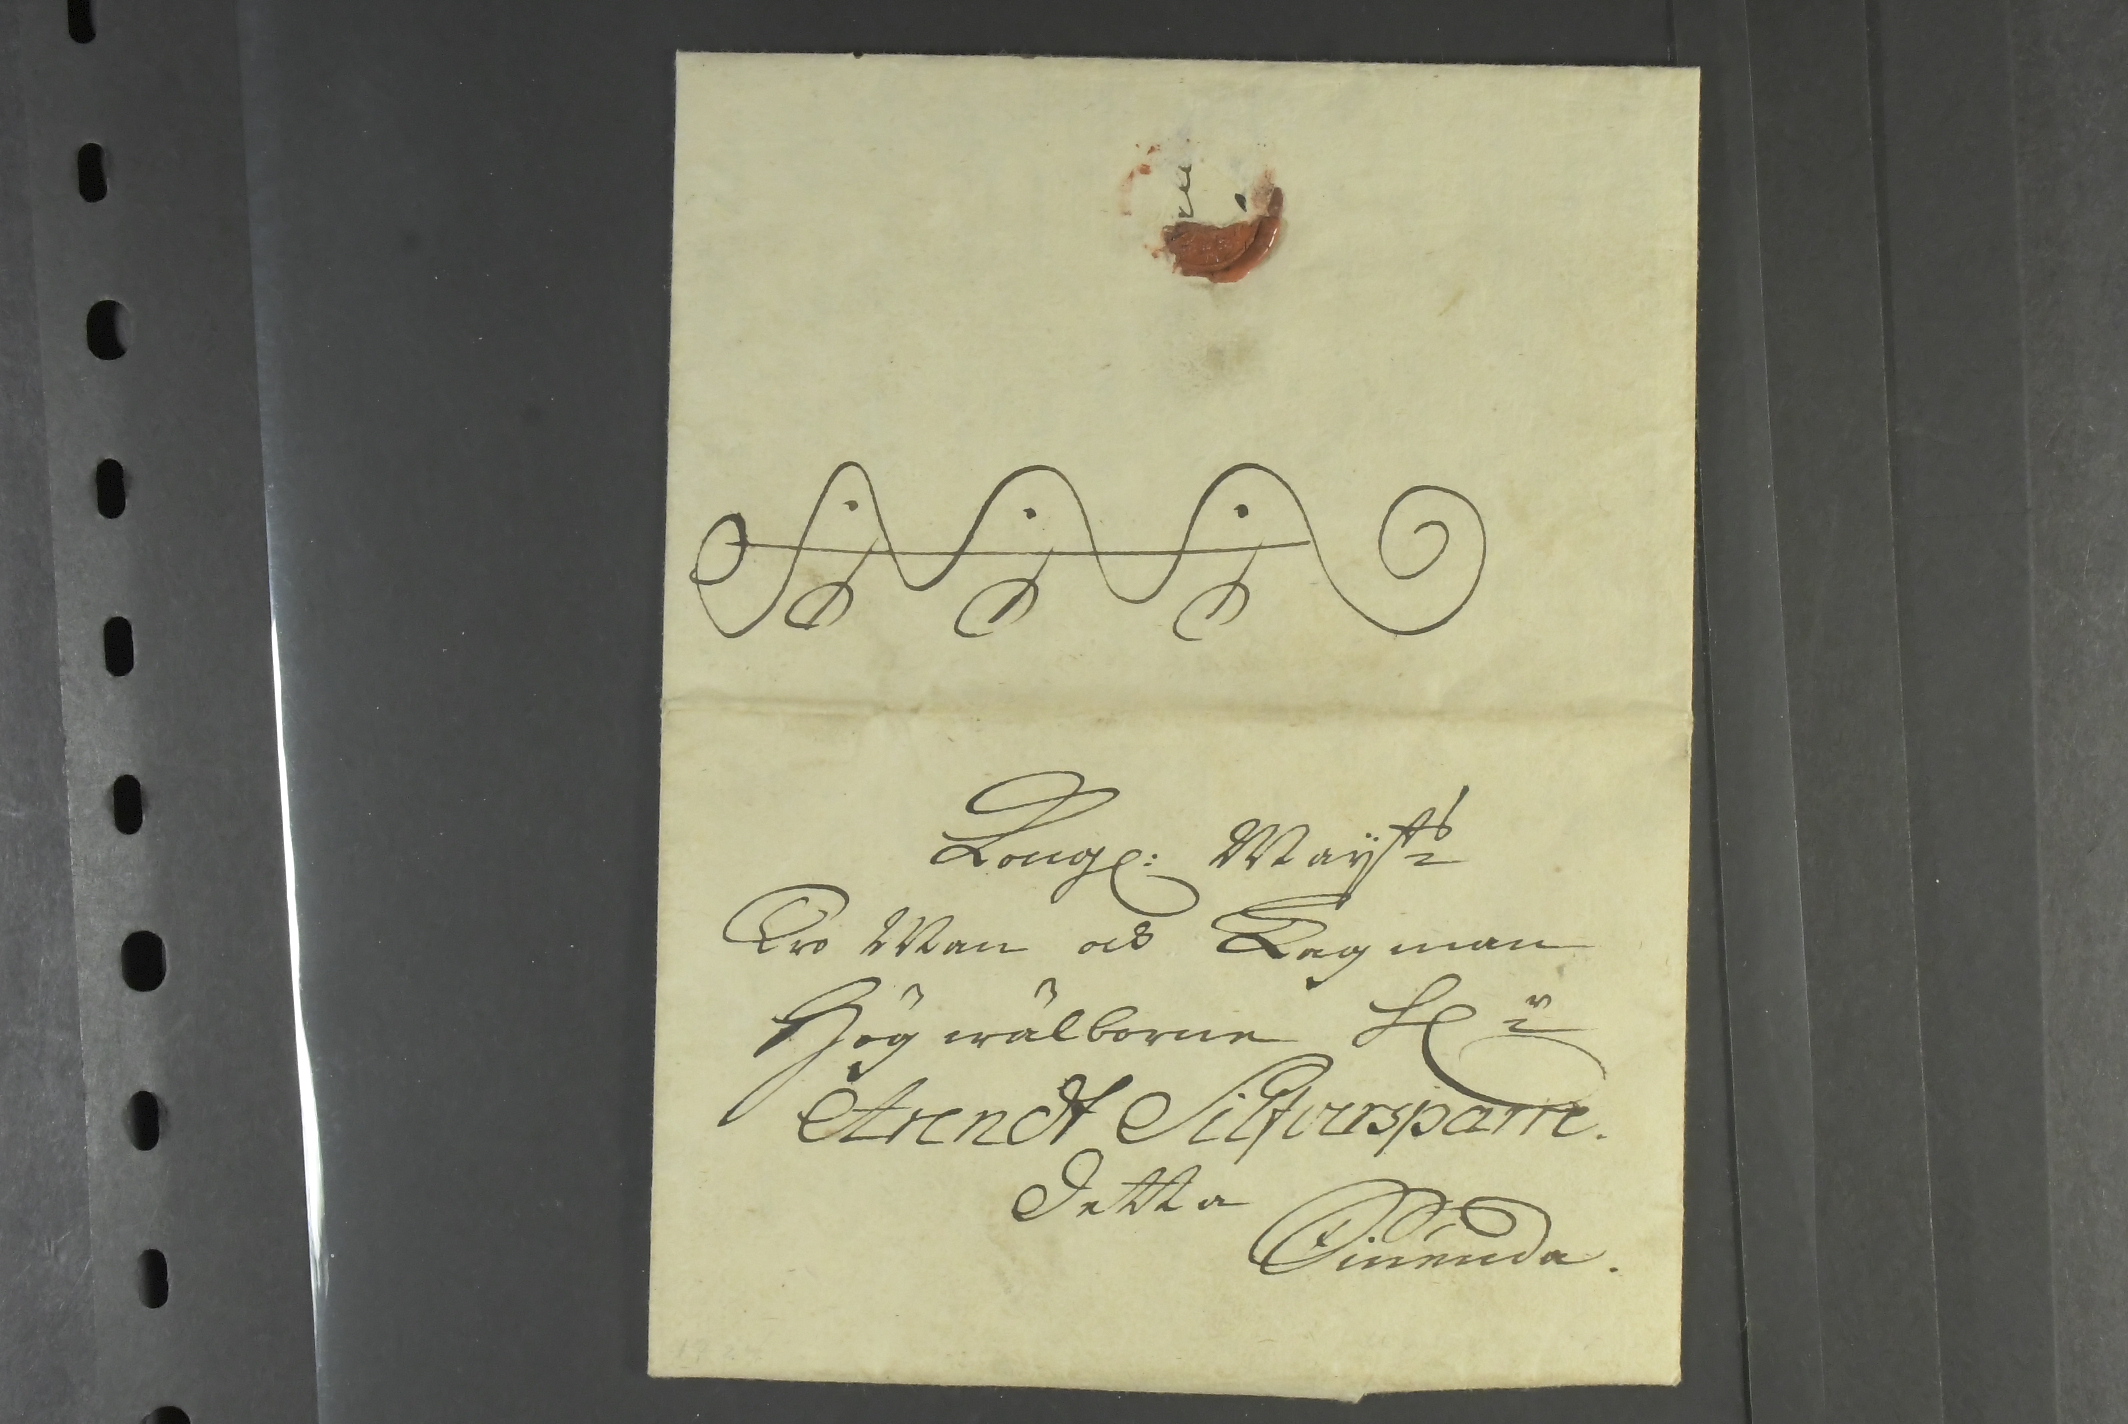 Kongl: Maÿtz
Tro Man och Lagman
Högwälborne H:r
Arendt Silfversparre.
Detta
Dinenda.